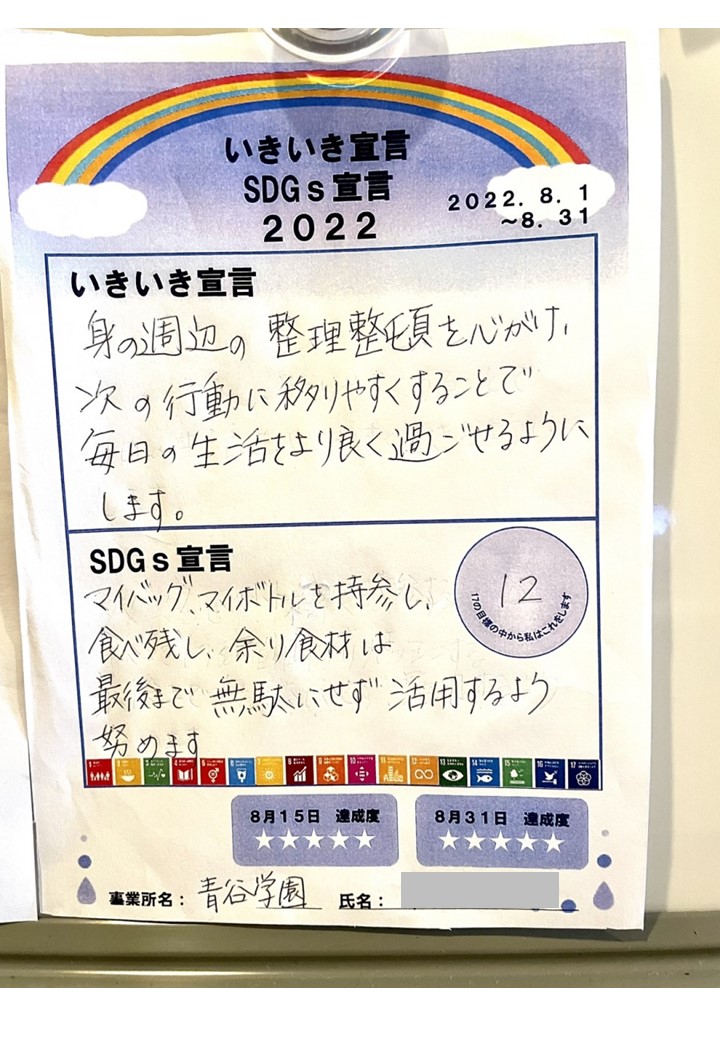 いきいき宣言
SDGs宣言
2022
2022.8.1
~8.31
いきいき宣言
身の周辺の整理整頓を心がけ、
次の行動に移りやすくすることで
毎日の生活をより良く過ごせるように
します。
SDGs宣言
12
17の目標の中から私はこれをします
マイバッグ、マイボトルを持参し、
食べ残し、余り食材は
最後まで無駄にせず活用するよう
努めます
8月15日 達成度
★★★★★
8月31日 達成度
★★★★★
事業所名：青谷学園 氏名：